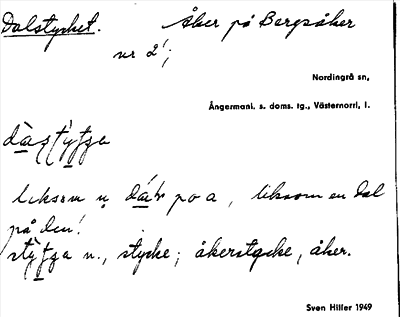 Dalstycket. Åker på Bergsåker
nr 2¹;
Nordingrå sn,
Ångermanl. s. doms. tg., Västernorrl, l.
liksom n på a, liksom en dal
på den!
n., stycke; åkerstycke, åker.
Sven Hiller 1949